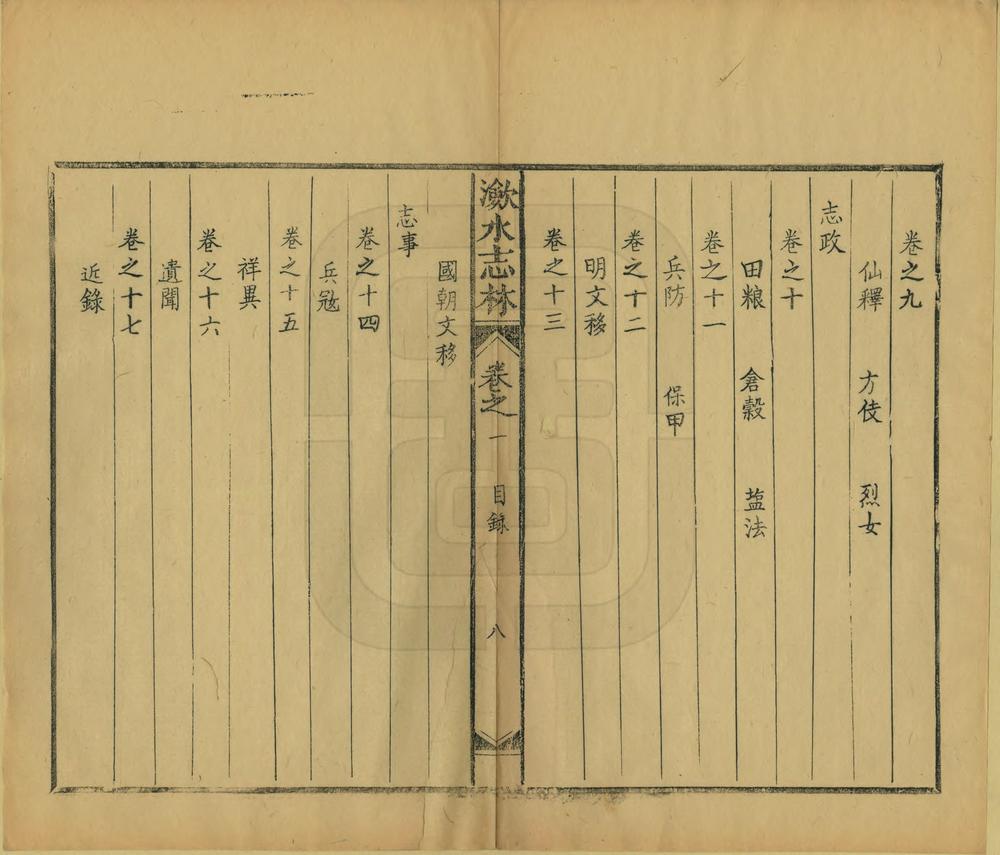 卷之九
仙釋　方伎　烈女
志政
卷之十
田粮　倉穀　塩法
卷之十一
兵防　保甲
卷之十二
明文移
卷之十三
漱水志林　卷之一　目錄　八
國朝文移
志事
卷之十四
兵寇
卷之十五
祥異
卷之十六
遺聞
卷之十七
近錄